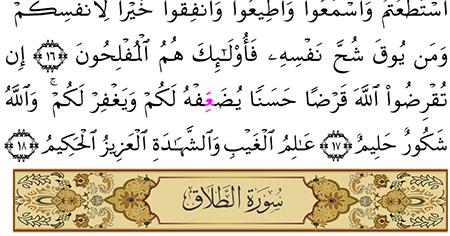 ٱسْتَطَعْتُمْ وَٱسْمَعُوا۟ وَأَطِيعُوا۟ وَأَنفِقُوا۟ خَيْرًا لِّأَنفُسِكُمْ
وَمَن يُوقَ شُحَّ نَفْسِهِۦ فَأُو۟لَٰٓئِكَ هُمُ ٱلْمُفْلِحُونَ ﴿١٦﴾ إِن
تُقْرِضُوا۟ ٱللَّهَ قَرْضًا حَسَنًا يُضَعِّفْهُ لَكُمْ وَيَغْفِرْ لَكُمْ ۚ وَٱللَّهُ
شَكُورٌ حَلِيمٌ ﴿١٧﴾ عَٰلِمُ ٱلْغَيْبِ وَٱلشَّهَٰدَةِ ٱلْعَزِيزُ ٱلْحَكِيمُ ﴿١٨﴾
سُورَةُ ٱلطَّلَاقِ